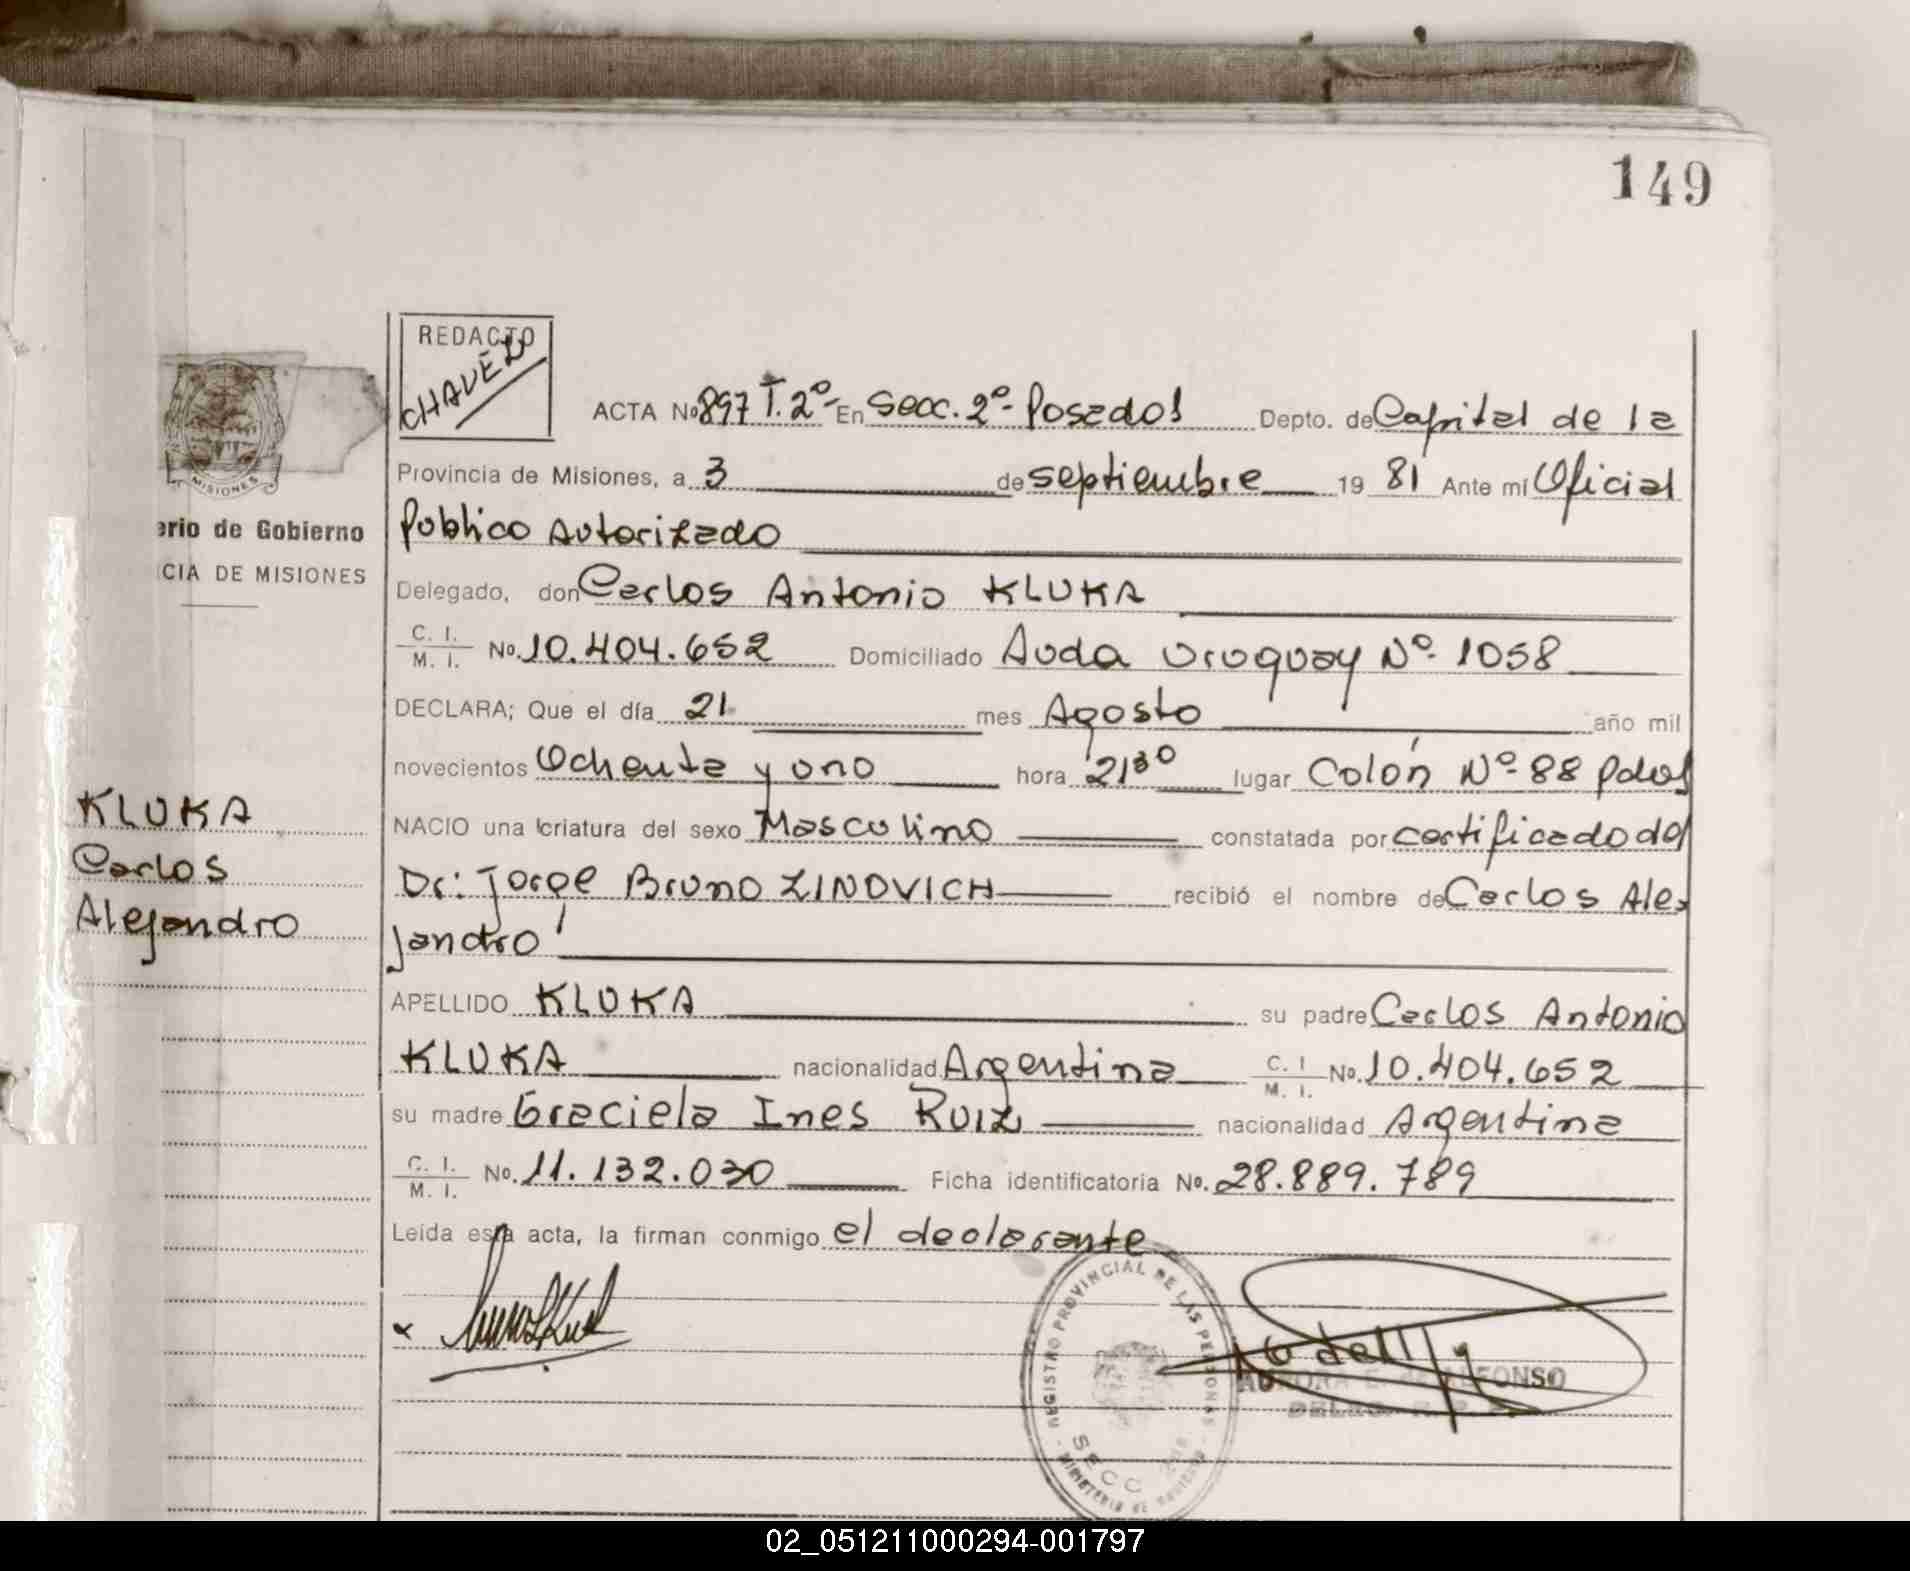 149
REDACTO
CHAVEZ
ACTA No 897 T. 2º- En Secc. 2º- Posadas Depto. de Capital de la
Provincia de Misiones, a 3 de septiembre 19 81 Ante mí Oficial
Publico Autorizado
MISIONES
erio de Gobierno
CIA DE MISIONES
Delegado, don Carlos Antonio KLUKA
C. I.
M. I. No. 10.404.652 Domiciliado Avda Uruguay Nº- 1058
DECLARA; Que el día 21 mes Agosto año mil
novecientos Ochenta y uno hora 21³⁰ lugar Colón Nº- 88 Pdas
KLUKA
Carlos
Alejandro
NACIO una criatura del sexo Masculino constatada por certificado del
Dr: Jorge Bruno ZINOVICH recibió el nombre de Carlos Ale-
jandro
APELLIDO KLUKA su padre Carlos Antonio
KLUKA nacionalidad Argentina C. I
M. I. No. 10.404.652
su madre Graciela Ines RUIZ nacionalidad Argentina
C. I.
M. I. No. 11.132.030 Ficha identificatoria No. 28.889.789
Leída esta acta, la firman conmigo el declarante
REGISTRO PROVINCIAL DE LAS PERSONAS
SECC
MINISTERIO DE
AURORA E. de ALFONSO
02_051211000294-001797